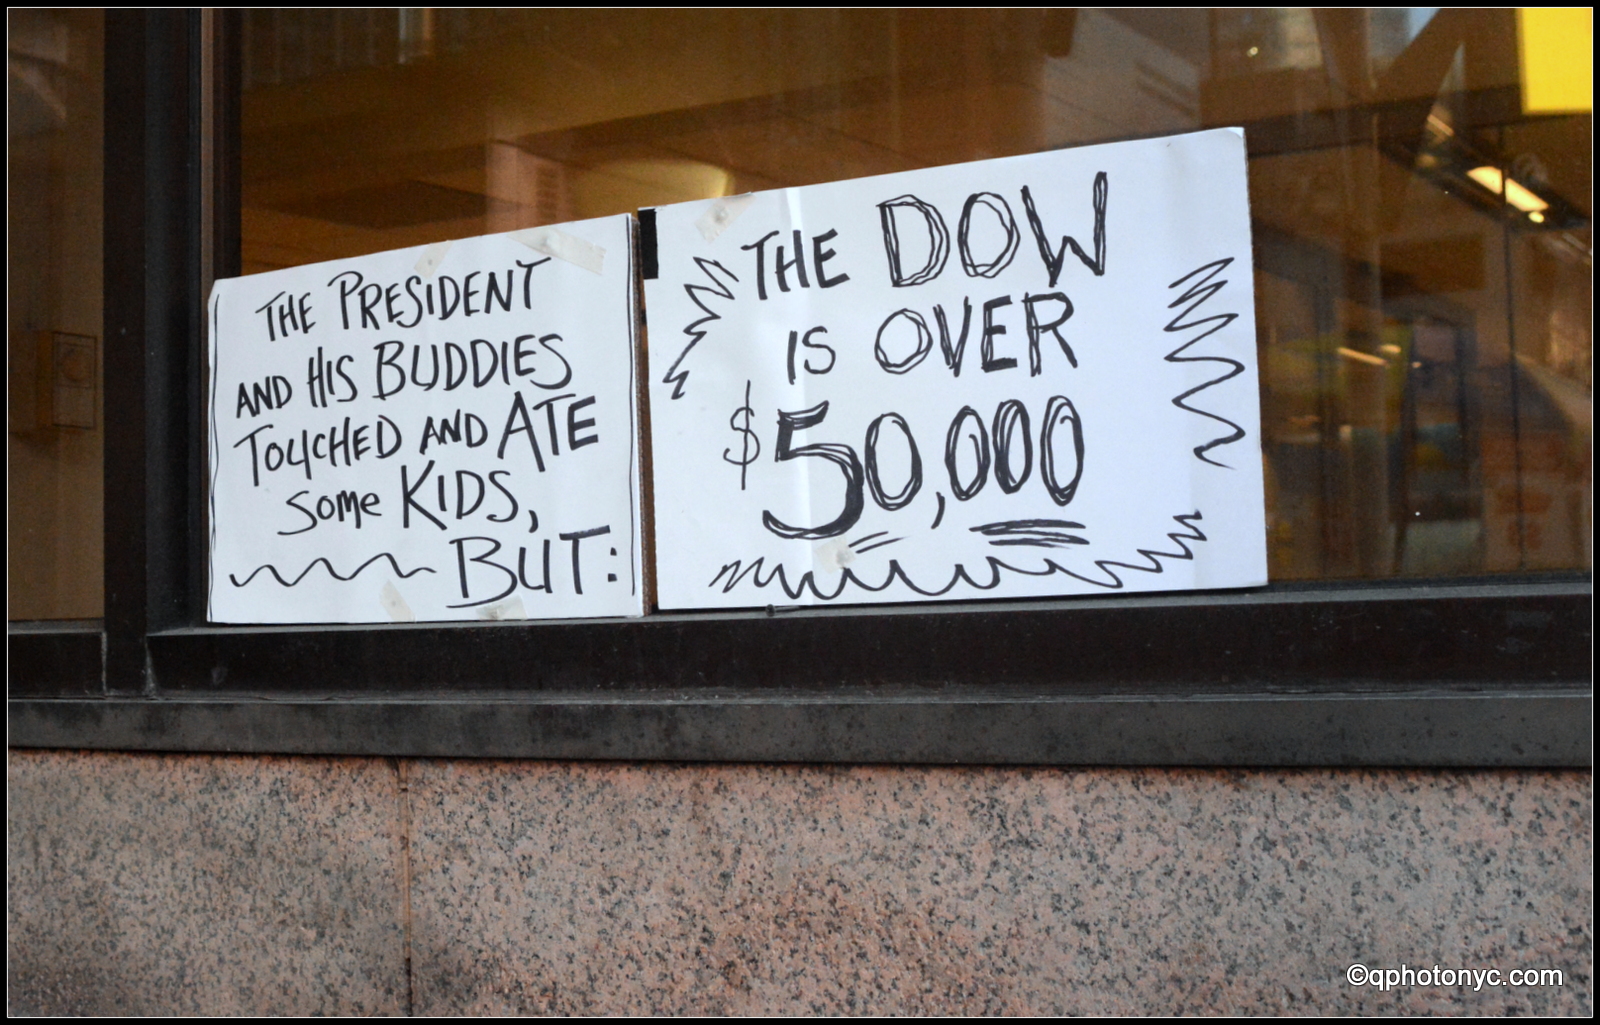 THE PRESIDENT
AND HIS BUDDIES
TOUCHED AND ATE
Some KIDS,
BUT:
THE DOW
IS OVER
$50,000
©qphotonyc.com